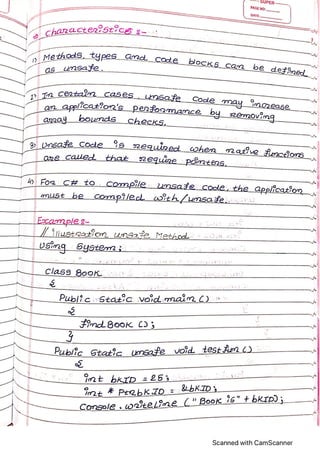 SUPER
PAGE NO.
DATE
characteristics :-
1) Methods, types and code blocks can be defined
as unsafe.
2) In certain cases unsafe code may increase
an application's performance by removing
array bounds checks.
3) Unsafe code is required when native functions
are called that require pointers.
4) For C# to compile unsafe code, the application
must be compiled with/unsafe.
Example:-
// illustration unsafe Method
using System;
class Book
{
Public static void main()
{
findBook ();
}
Public Static unsafe void testfun()
{
int bkID = 25;
int * PtrbkID = &bkID;
Console.writeLine ("Book is" + bkID);
Scanned with CamScanner